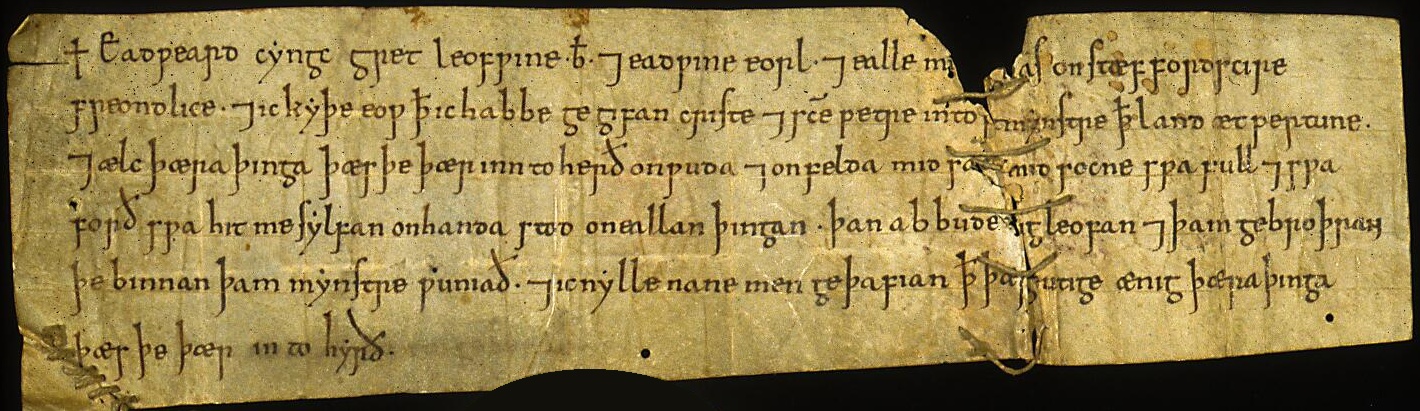 ✝ Eadƿeard cyngc gret leofƿine · b̄ · ⁊ eadƿine eorl · ⁊ ealle on stæffordscire
freondlice · ⁊ ic kyþe eoƿ ꝥ ic habbe gegifan criste ⁊ sc̄e petre into ꝥ land æt pertune .
⁊ ælc þæra þinga þæs þe þær inn to herð on ƿuda ⁊ on felda mid and socne sƿa full ⁊ sƿa
forð sƿa hit me sylfan on handa stod on eallan þingan · þan abbude leofan ⁊ þam gebroþran
þe binnan þam mynstre ƿuniað · ⁊ ic nylle nane men geþafian ꝥ þar gutige ænig þæra þinga
þæs þe þær in to hyrð ·